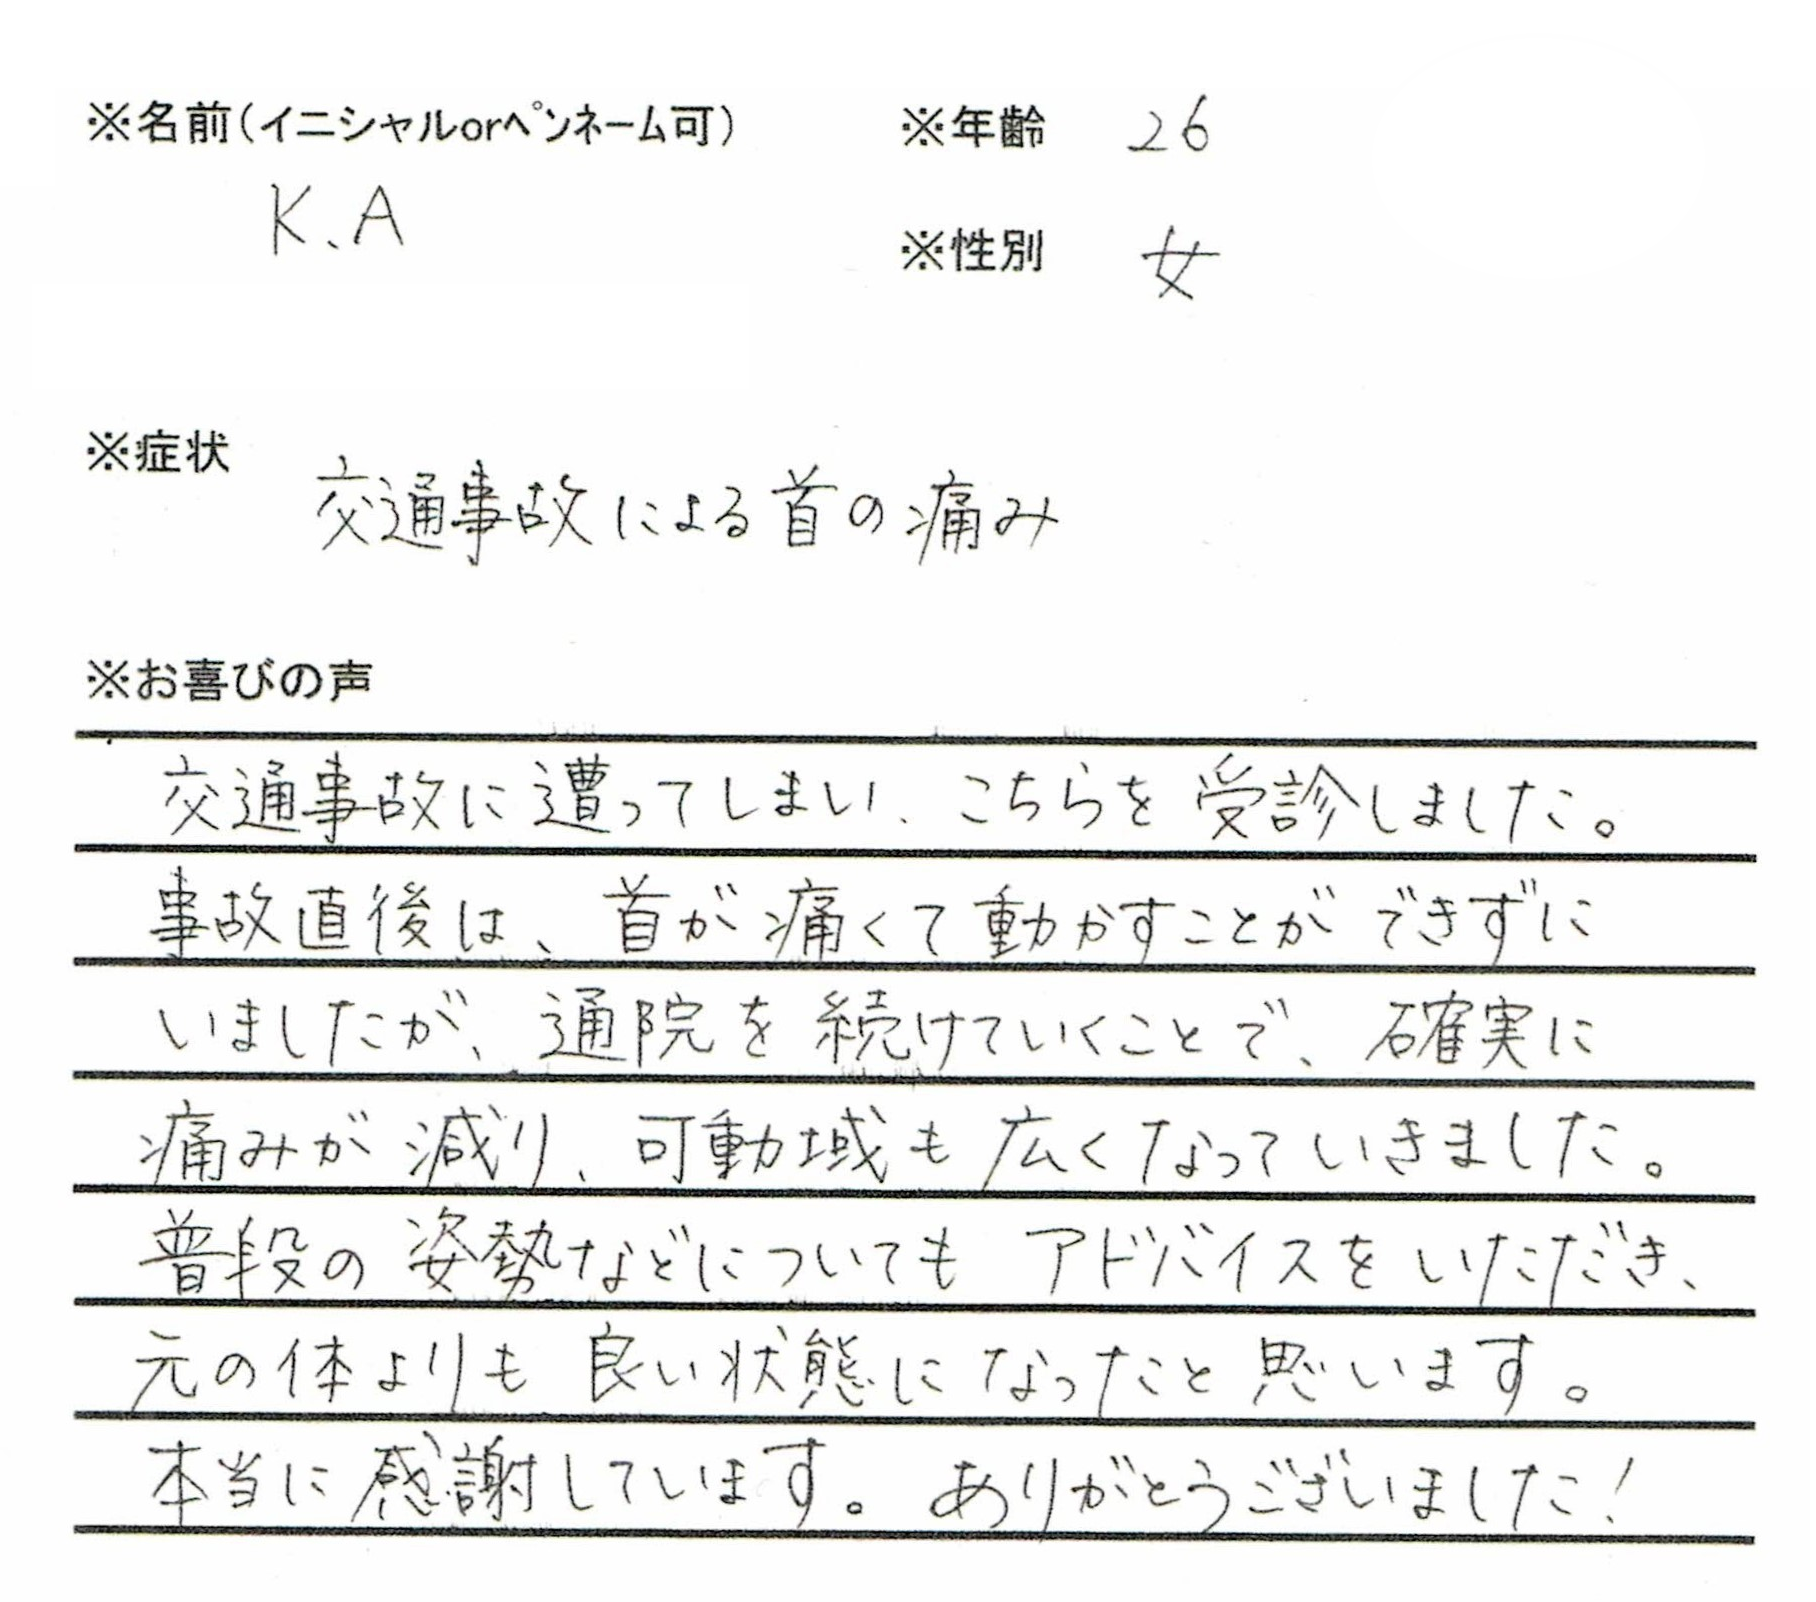 ※名前(イニシャルorペンネーム可)
K.A
※年齢 26
※性別 女
※症状
交通事故による首の痛み
※お喜びの声
交通事故に遭ってしまい、こちらを受診しました。
事故直後は、首が痛くて動かすことができずに
いましたが、通院を続けていくことで、確実に
痛みが減り、可動域も広くなっていきました。
普段の姿勢などについてもアドバイスをいただき、
元の体よりも良い状態になったと思います。
本当に感謝しています。ありがとうございました!